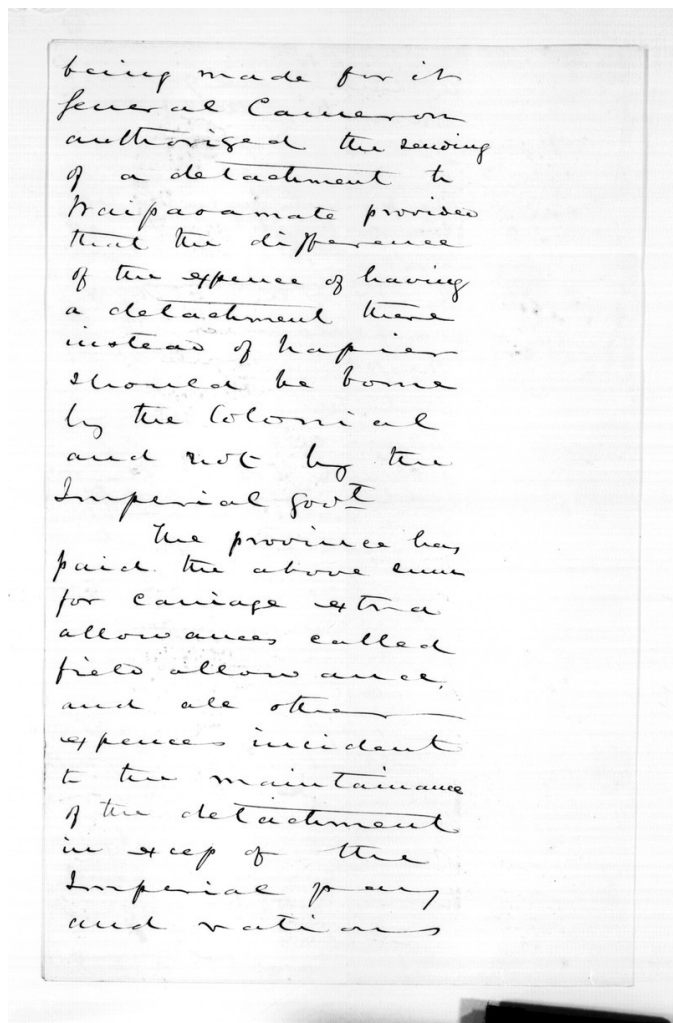 being made for it
General Cameron
authorized the sending
of a detachment to
Waipawamate provided
that the difference
of the expence of having
a detachment there
instead of Napier
should be borne
by the Colonial
and not by the
Imperial Govt
The province has
paid the above sum
for carriage extra
allowances called
field allowance,
and all other
expences incident
to the maintainance
of the detachment
in excep of the
Imperial pay
and rations